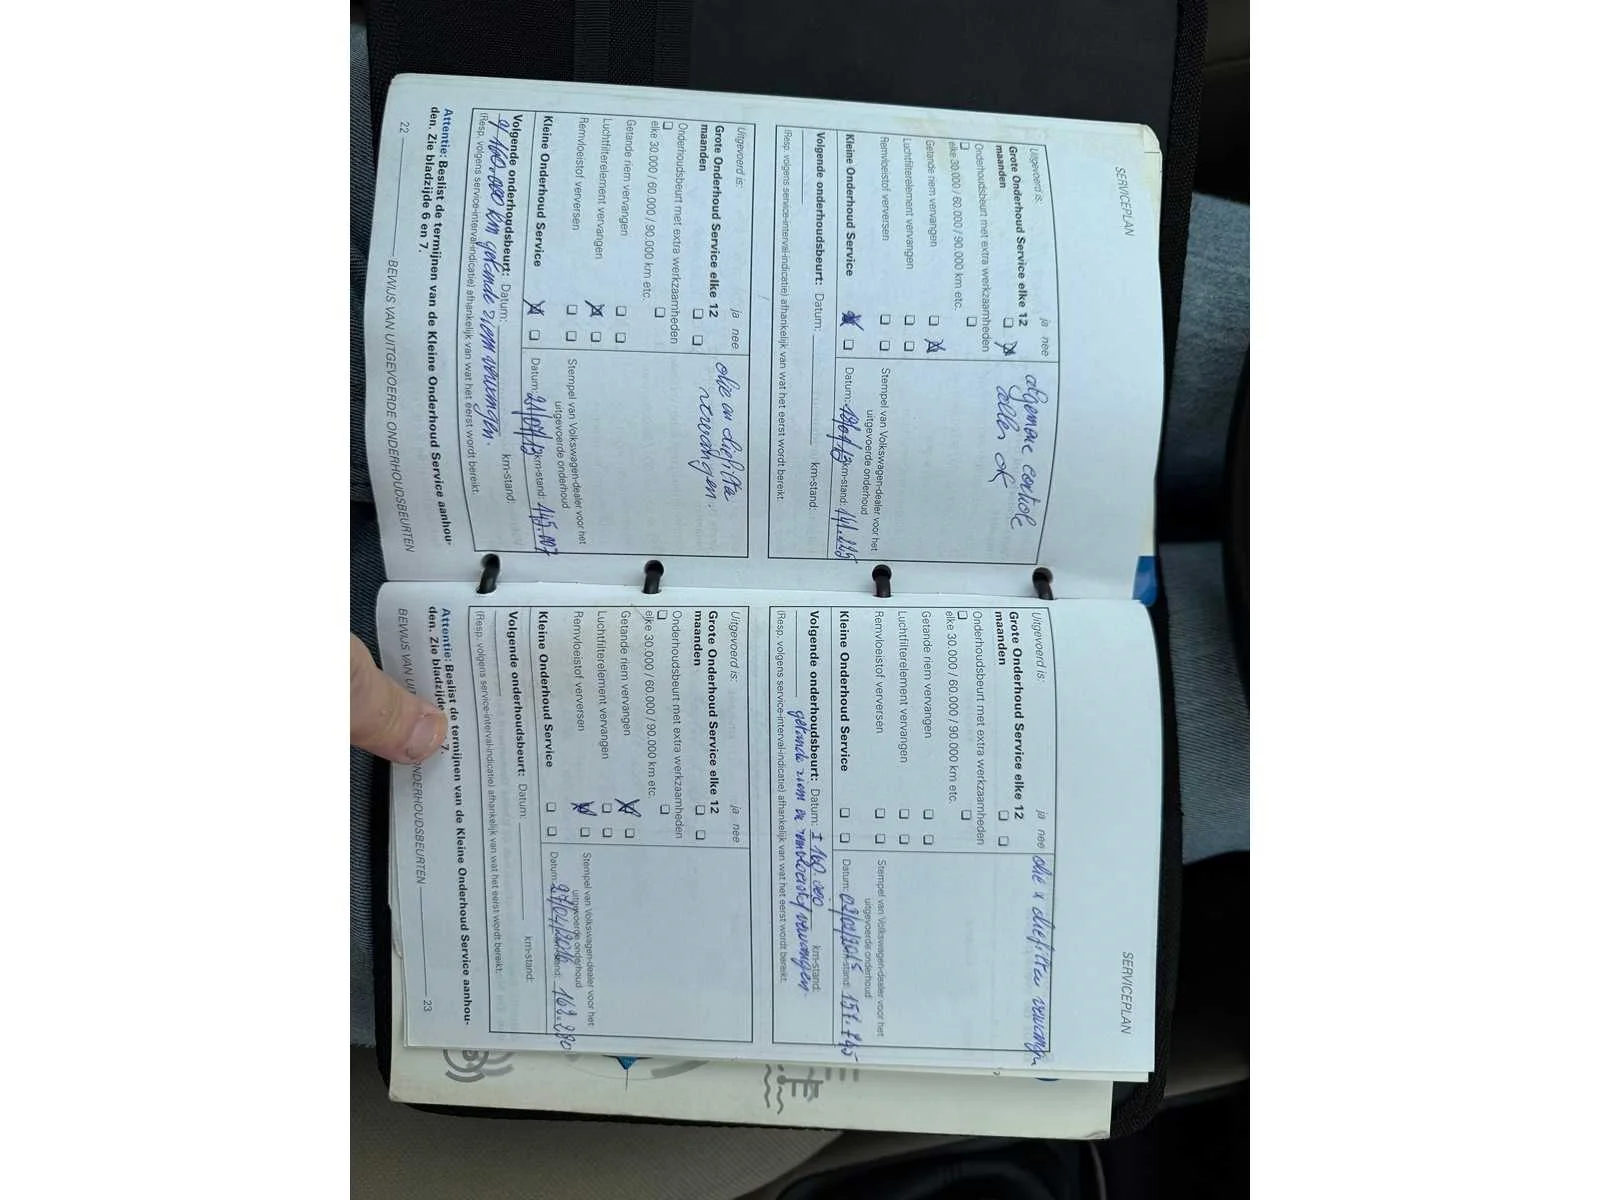 SERVICEPLAN
Uitgevoerd is: ja nee
Grote Onderhoud Service elke 12
maanden
Onderhoudsbeurt met extra werkzaamheden
elke 30.000 / 60.000 / 90.000 km etc.
Getande riem vervangen
Luchtfilterelement vervangen
Remvloeistof verversen
Kleine Onderhoud Service
algemene controle
alles OK
Stempel van Volkswagen-dealer voor het
uitgevoerde onderhoud
Datum: km-stand:
Volgende onderhoudsbeurt: Datum: km-stand:
(Resp. volgens service-interval-indicatie) afhankelijk van wat het eerst wordt bereikt.
Uitgevoerd is: ja nee
Grote Onderhoud Service elke 12
maanden
Onderhoudsbeurt met extra werkzaamheden
elke 30.000 / 60.000 / 90.000 km etc.
Getande riem vervangen
Luchtfilterelement vervangen
Remvloeistof verversen
Kleine Onderhoud Service
olie en
Stempel van Volkswagen-dealer voor het
uitgevoerde onderhoud
Datum: 21/07/13 km-stand:
Volgende onderhoudsbeurt: Datum: km-stand:
160.000 km getande riem vervangen.
(Resp. volgens service-interval-indicatie) afhankelijk van wat het eerst wordt bereikt.
Attentie: Beslist de termijnen van de Kleine Onderhoud Service aanhou-
den. Zie bladzijde 6 en 7.
22 BEWIJS VAN UITGEVOERDE ONDERHOUDSBEURTEN
SERVICEPLAN
Uitgevoerd is: ja nee
Grote Onderhoud Service elke 12
maanden
Onderhoudsbeurt met extra werkzaamheden
elke 30.000 / 60.000 / 90.000 km etc.
Getande riem vervangen
Luchtfilterelement vervangen
Remvloeistof verversen
Kleine Onderhoud Service
olie
Stempel van Volkswagen-dealer voor het
uitgevoerde onderhoud
Datum: km-stand:
Volgende onderhoudsbeurt: Datum: ± 160.000 km-stand:
getande riem en remvloeistof vervangen
(Resp. volgens service-interval-indicatie) afhankelijk van wat het eerst wordt bereikt.
Uitgevoerd is: ja nee
Grote Onderhoud Service elke 12
maanden
Onderhoudsbeurt met extra werkzaamheden
elke 30.000 / 60.000 / 90.000 km etc.
Getande riem vervangen
Luchtfilterelement vervangen
Remvloeistof verversen
Kleine Onderhoud Service
Stempel van Volkswagen-dealer voor het
uitgevoerde onderhoud
Datum: 27/04/2016
Volgende onderhoudsbeurt: Datum: km-stand:
(Resp. volgens service-interval-indicatie) afhankelijk van wat het eerst wordt bereikt.
Attentie: Beslist de termijnen van de Kleine Onderhoud Service aanhou-
den. Zie bladzijde 7.
BEWIJS VAN ONDERHOUDSBEURTEN 23